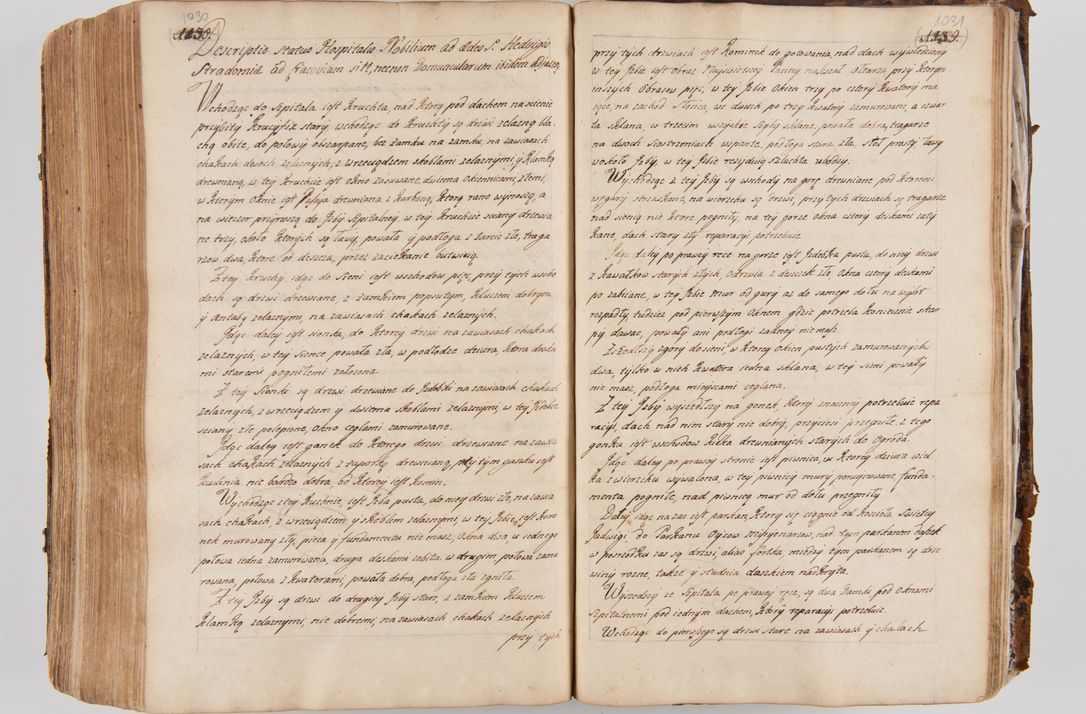 1030
Descriptio Status Hospitalis Nobilium ad Aedes S. Hedvigis
Stradomiae ad Cracoviam siti, necnon Domuncularum ibidem
Wchodząc do Szpitala iest Kruchta, nad ktorą pod dachem na scienie
przybity Krucyfix stary, wchodząc do Kruchty są drzwi zelazną bla
chą obite, do połowy obszarpane, bez zamku na zamku, na zawiasach
chakach dwoch zelaznych, z wrzeciądzem skoblami zelaznymi y klamką
drewnianą, w tey kruchcie iest okno zasuwane, dwiema okiennicami, złemi,
w ktorym oknie iest Passya drewniana z karboną, ktorą rano wynoszą, a
na wieczor przynoszą do Izby szpitalney, w tey kruchcie sciany drzewia
ne trzy, około ktorych są ławy, powała y podłoga z tarcic zło, traga
rzow dwa, ktore od deszcza, przez zaciekanie butwieią.
Z tey Kruchty idąc do sieni iest wschodow pięć, przy tych wscho
dach są drzwi drzewiane, z zamkiem popsutym kluczem dobrym
y antabą zelaznymi, na zawiasach chakach zelaznych.
Idąc daley iest sionka, do ktorey drzwi na zawiasach chakach
zelaznych, w tey sionce powała zła, w podłodze dziura, ktora deska
mi staremi pogniłemi załozona.
Z tey sionki są drzwi drzewiane do Izdebki na zawiasach chakach
zelaznych, z wrzeciądzem y dwiema skoblami zelaznymi, w tey Izdebce
sciany złe polepione, okno cegłami zamurowane.
Idąc daley iest ganek do ktorego drzwi drzewiane na zawia
sach chakach zelaznych z zaporką drewnianą, przy tym ganku iest
kuchnia nie bardzo dobra, od ktorey iest komin.
Wychodząc z tey kuchnie, iest Izba pusta, do niey drzwi złe, na zawia
sach chakach, z wrzeciądzem y skoblem zelaznymi, w tey Izbie iest komi
nek murowany zły, pieca y fundamentu nie masz, okna dwa, u iednego
połowa iedna zamurowana, druga deskami zabita, w drugim, połowa zamu
rowana, połowa z kwaterami, powała dobra, podłoga zła zgniła.
Z tey Izby są drzwi do drugiey Izby stare, z zamkiem kluczem
klamką zelaznymi, nie dobremi, na zawiasach chakach zelaznych
przy tych
1031
przy tych drzwiach iest kominek do gotowania, nad dach wywiedziony
w tey Izbie iest obraz Nayswietszey Panny nakształ ołtarza przy ktorym
inszych obrazow pięć, w tey Izbie okien trzy po cztery kwatery ma
iące, na zachod słonca, we dwoch po trzy kwatery zamurowane, a czwar
ta sklana, w trzecim wszystkie szyby sklane, powała dobra, tragarze
na dwoch siostrzeniach wsparte, podłoga stara zła, stoł prosty, ławy
wokoło Izby, w tey Izbie rezyduią szlachta ubodzy.
Wychodząc z tey Izby są wschody na gorę drewniane, pod ktoremi
węgary strzaskane, na wierzchu są drzwi, przy tych drzwiach są tragarze
nad sienią nie ktore pogniły, na tey gorze okna cztery deskami zaty
kane, dach stary zły reparacyi potrzebuie.
Idąc daley po prawey ręce na gorze iest Izdebka pusta, do niey drzwi
z kawałkow starych złych, odrzwia z desczek złe, okna cztery deskami
po zabiiane, w tey Izbie mur od gury az do samego dołu na wylot
rozpadły, tudziesz pod pierwszym oknem, gdzie potrzeba koniecznie skar
py dawac, powały ani podłogi zadney nie masz.
Zszedłszy z gory do sieni, w ktorey okien, pustych zamurowanych
dwa, tylko w nich kwatera iedna sklana, w tey sieni powały
nie masz, podłoga mieyscami ceglana.
Z tey Izby wyszedłszy na ganek, ktory znaczney potrzebuie repa
racyi, dach nad nim stary nie dobry, przyciesi przegniłe, z tego
gonku iest wschodow kilka drewnianych starych do ogroda.
Idąc daley po prawey stronie iest piwnica, w ktorey dziura wiel
ka z wierzchu wywalona, w tey piwnicy mury porysowane, funda
menta pogniłe, nad piwnicą mur od dołu przegniły.
Daley idąc na zad iest parkan, ktory się ciągnie od kosciola Swiętey
Jadwigi, do Parkanu Oycow Missyonarzow, nad tym parkanem daszek
w posrodku zas są drzwi, alias fortka, między tym parkanem są drze
winy rozne, także y studnia daszkiem nadkryta.
Wyszedszy ze Szpitala po prawey ręce, są dwa Domki pod oknami
szpitalnemi pod iednym dachem, ktory reparacyi potrzebuie.
Wchodząc do pierwszego są drzwi stare na zawiasach y chakach